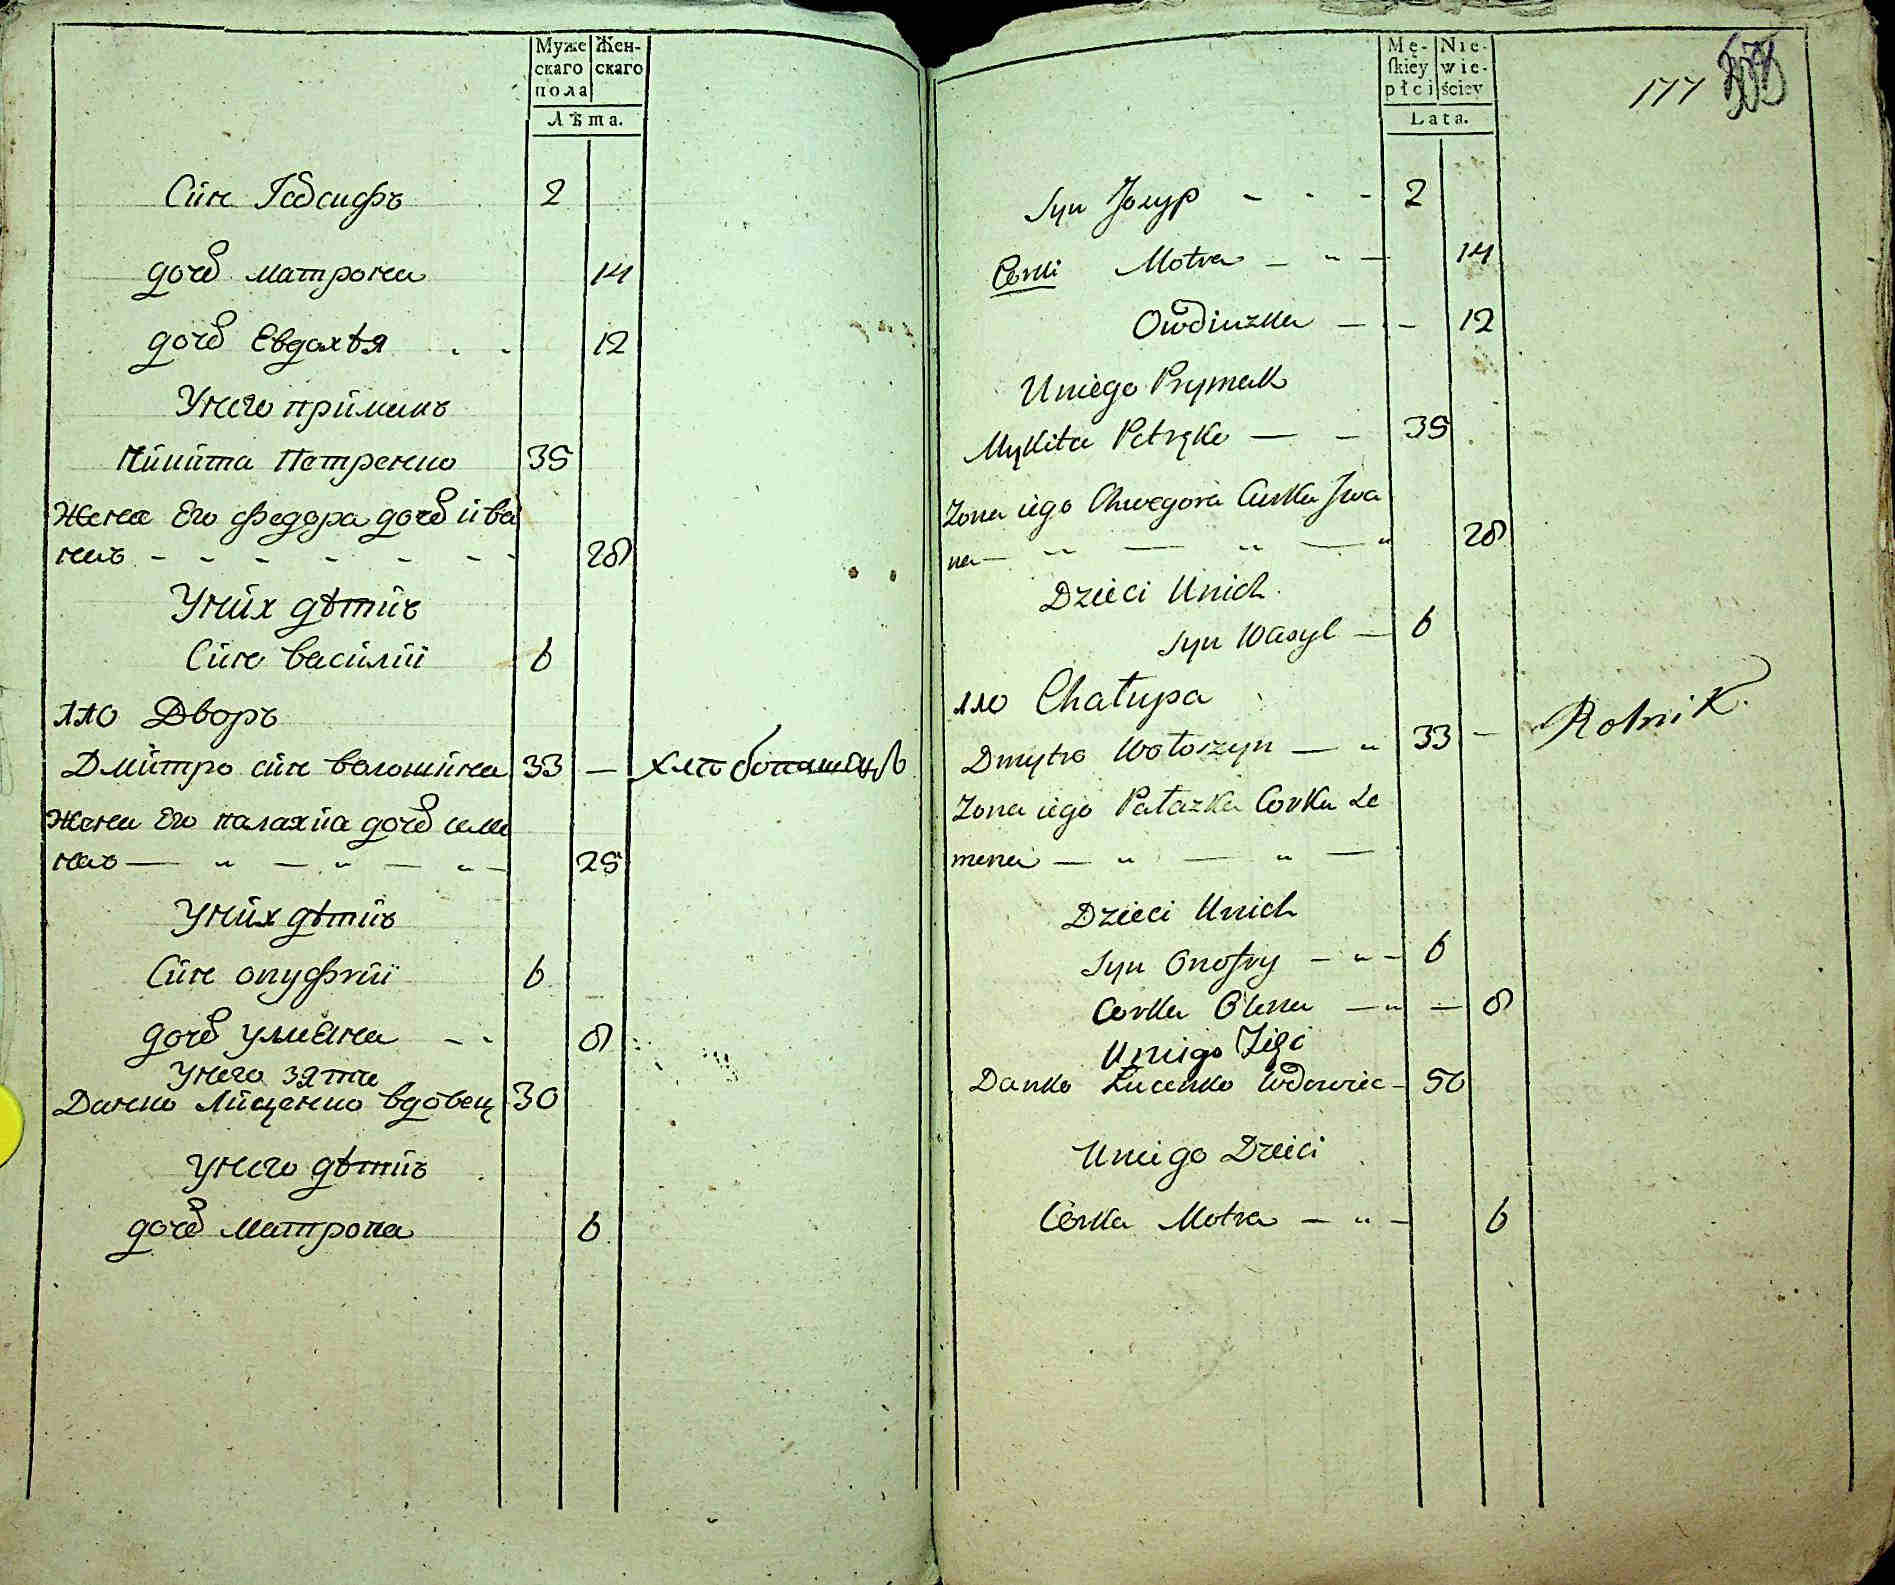 Муже Жен-
скаго скаго
пола
Лѣта.
Син Іѡсифъ 2
дочь матрона 14
дочь Евдохѣя 12
Унего примакъ
Микита Петренко 35
Жена Его федора дочь ива
нав 28
Уних дѣтив
Син василий 6
ѧло Дворъ
Дмитро син волошина 33 — хлѣбопашецъ
Жена Его палахиа дочь семе
нав — „ — „ — „ — 25
Уних дѣтив
Син онуфрий 6
дочь улиана 8
Унего зяте
Данко Лиценко вдовец 30
Унего дѣтив
дочь матрона 6
Mę- Nie-
ſkiey wie-
płci ściey
Lata.
177
Syn Jozyp - - - 2
Corki Motra — „ — 14
Owdiuzka — - — 12
Uniego Prymak
Mykita Petręko — — 35
Zona iego Chwegora Curka Jwa
na — „ — „ — „ 28
Dzieci Unich
Syn Wasyl — 6
Chałupa
Dmytro Wołoszyn — „ 33 — Rolnik.
Zona iego Pałazka Corka Se
mena — „ — „ —
Dzieci Unich
Syn Onofry — „ — 6
Corka Olena — „ — 8
Uniego Zięć
Danko Łucenko Wdowiec — 50
Uniego Dzieci
Corka Motra — „ — 6